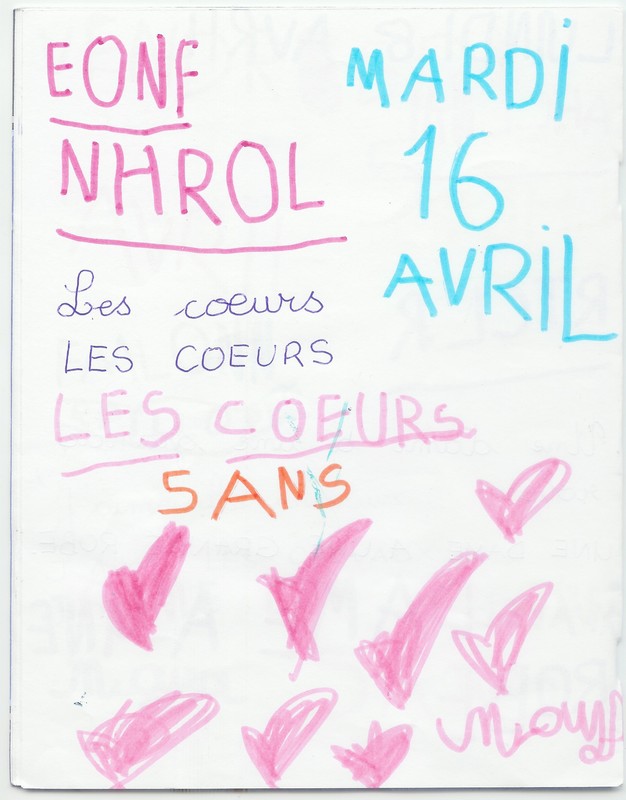 EONF
NHROL
MARDI
16
AVRIL
Les coeurs
LES COEURS
LES COEURS
5 ANS